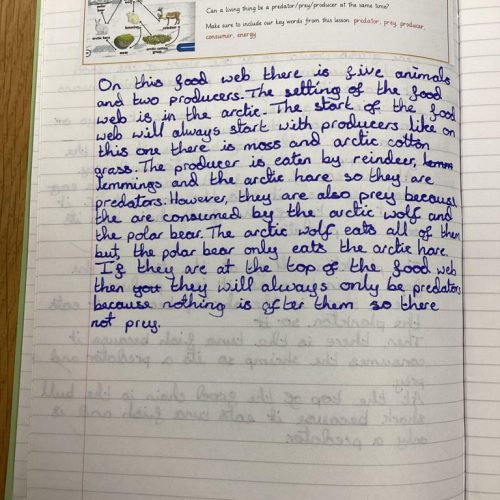 Can a living thing be a predator/prey/producer at the same time?
Make sure to include our key words from this lesson: predator, prey, producer,
consumer, energy
On this food web there is five animals
and two producers. The setting of the food
web is in the arctic. The start of the food
web will always start with producers like on
this one there is moss and arctic cotton
grass. The producer is eaten by reindeer,
lemmings and the arctic hare so they are
predators. However, they are also prey because
the are consumed by the arctic wolf and
the polar bear. The arctic wolf eats all of them
but, the polar bear only eats the arctic hare.
If they are at the top of the food web
then you they will always only be predators
because nothing is after them so there
not prey.